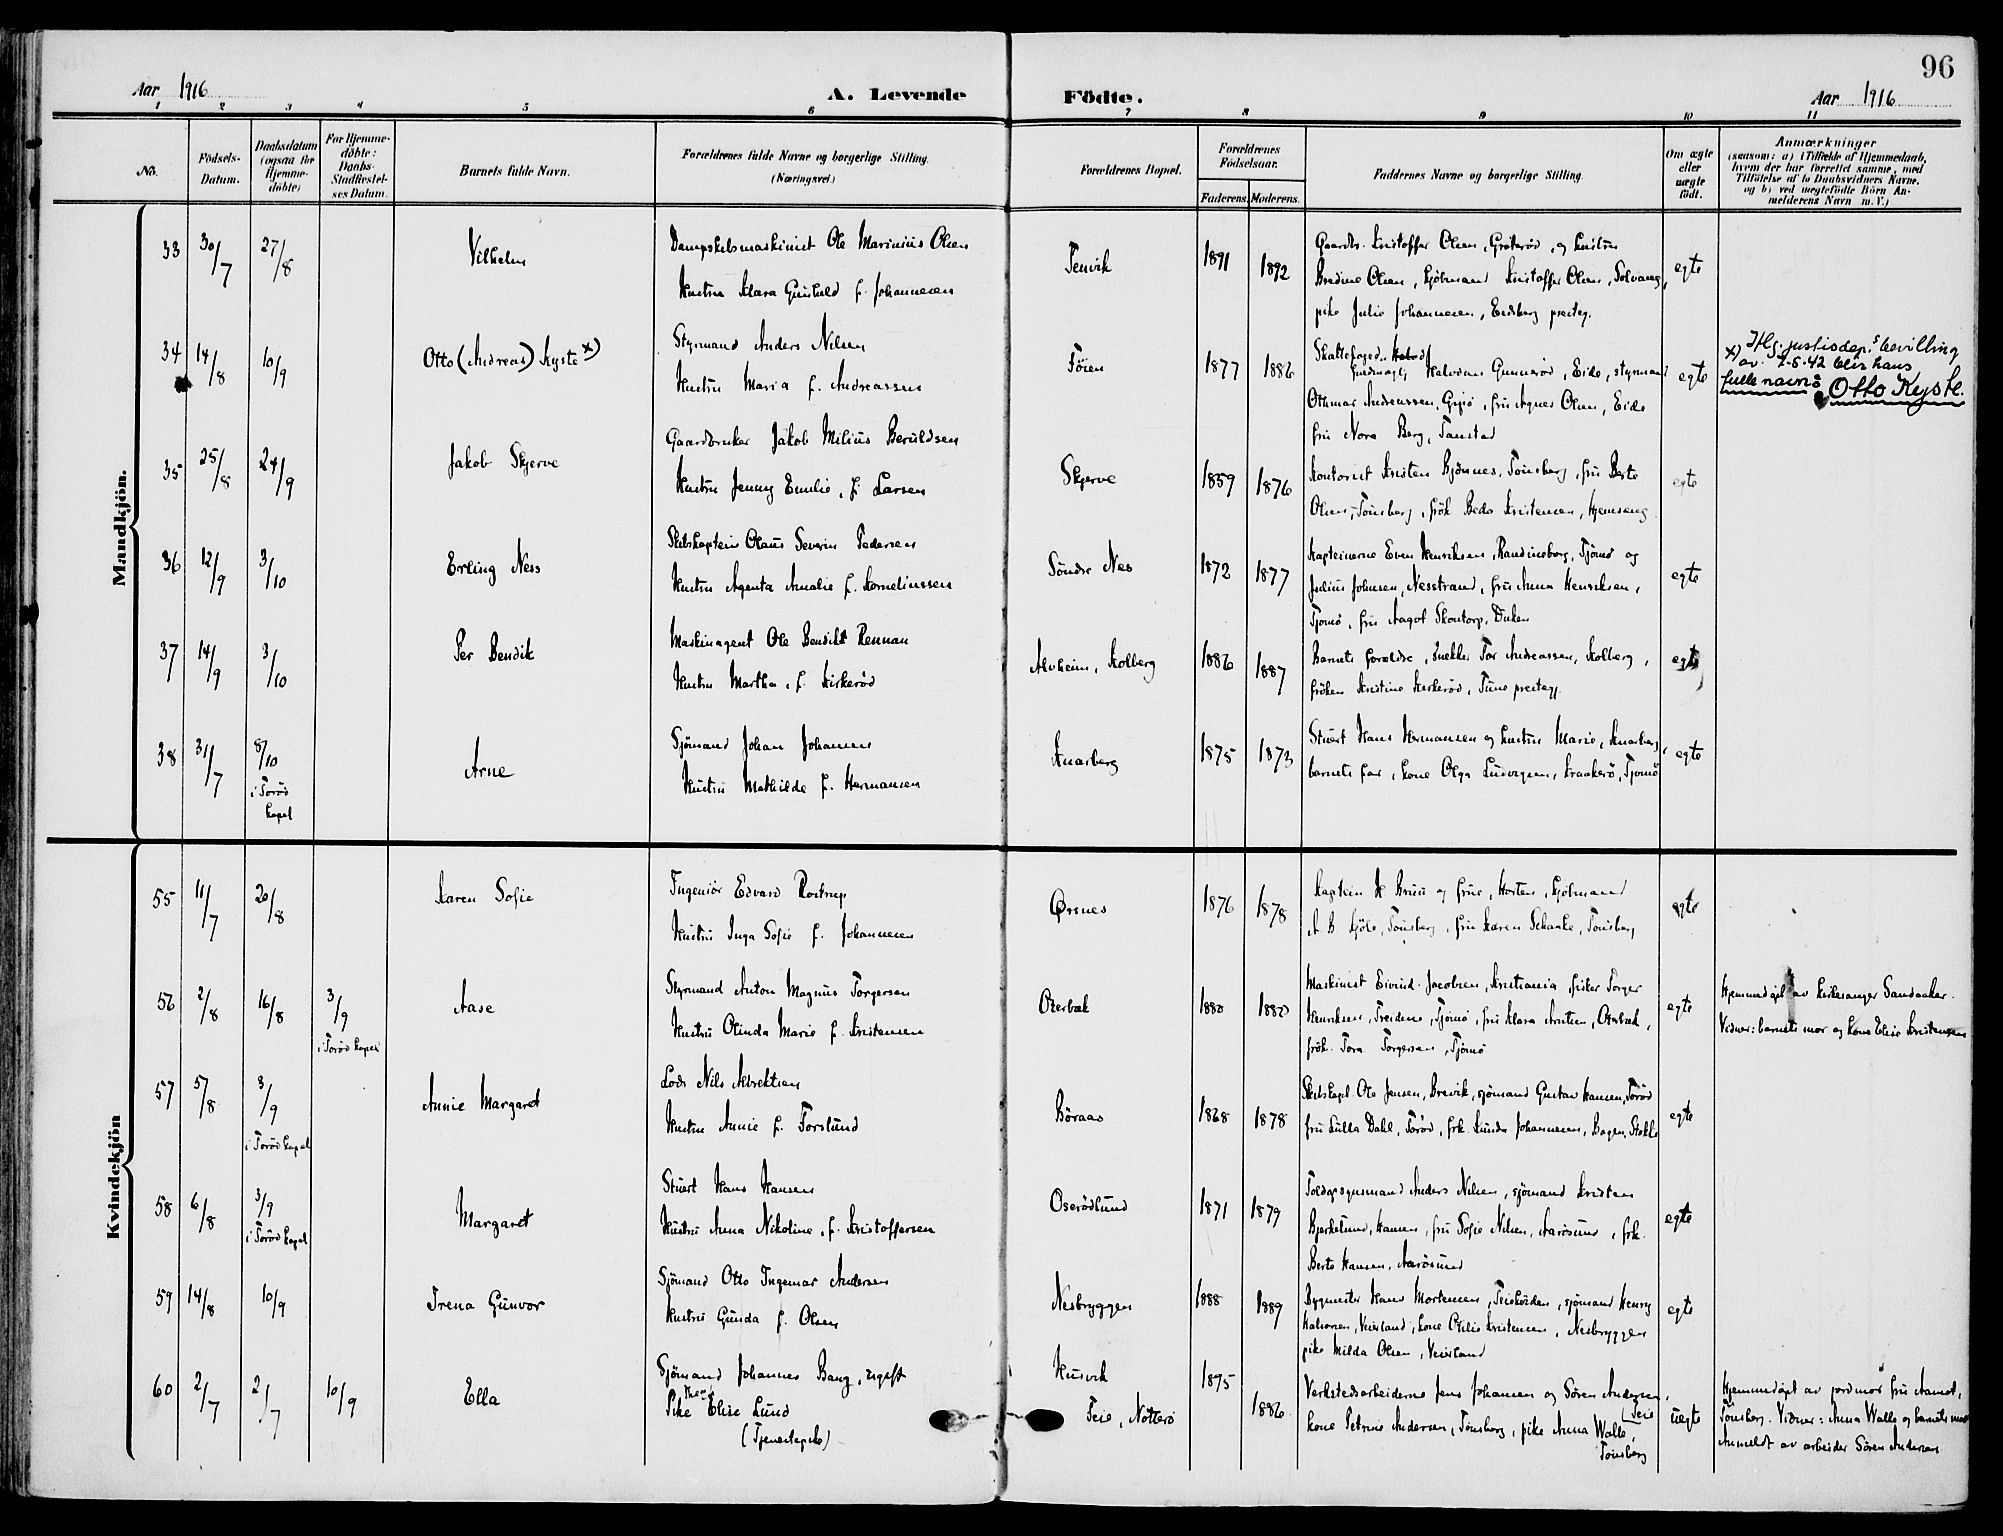 96
Aar 1916
A. Levende Födte.
Aar 1916
1 2 3 4 5 6 7 8 9 10 11
No.
Födsels-
Datum.
Daabsdatum
(ogsaa for
Hjemme-
döbte)
For Hjemme-
döbte:
Daabs-
Stadfæstel-
ses Datum.
Barnets fulde Navn.
Forældrenes fulde Navne og borgerlige Stilling.
(Næringsvei.)
Forældrenes Bopæl.
Forældrenes
Födselsaar.
Faderens. Moderens.
Faddernes Navne og borgerlige Stilling.
Om ægte
eller
uægte
födt.
Anmærkninger
(saasom: a) i Tilfælde af Hjemmedaab,
hvem der har forrettet samme, med
Tilföielse af to Daabsvidners Navne,
og b) ved uægtefödte Börn An-
melderens Navn m. V.)
Mandkjön.
33 30/7 27/8 Vilhelm
Dampskibsmaskinist Ole Marinius Olsen
Hustru Klara Gunhild f. Johannesen
Tenvik 1891 1892
Gaardbr. Kristoffer Olsen, Gröterød, og hustru
Bredine Olsen, hjölmand Kristoffer Olsen, Solvang,
pike Julie Johannesen, Eidsberg presteg.
egte
34 14/8 10/9 Otto (Andreas) Kyste x)
Styrmand Anders Nilsen
Hustru Maria f. Andreassen
Föien 1877 1886
Skattefoged
Halvdan Gunnerød, Eide, styrmand
Othmar Andreassen, fru Agnes Olsen, Eide
fru Nora Berg, Tanstad
egte
x) Iflg. justisdep.s bevilling
av 2-5-42 blir hans
fulle navn: Otto Kyste.
35 25/8 24/9 Jakob Skjerve
Gaardbruker Jakob Milius Beruldsen
Hustru Jenny Emilie, f. Larsen
Skjerve 1859 1876
Kontorist Kristen Bjönnes, Tönsberg, fru Berte
Olsen, Tönsberg, frök Beda Kristensen, Hjemseng
egte
36 12/9 3/10 Erling Ness
Skibskaptein Olaus Severin Pedersen
Hustru Agenta Amalie f. Korneliussen
Söndre Nes 1872 1877
Kapteinerne Even Henriksen, Randineborg, Tjömö og
Julius Johnsen, Nesstrand, fru Anna Henriksen,
Tjömö, fru Aagot Skontorp, Duken
egte
37 14/9 3/10 Per Bendik
Maskinagent Ole Bendikt Rennan
Hustru Martha, f. Kirkerød
Alvheim, Kolberg 1886 1887
Barnets forældre, snekker Tor Andreassen, Kolberg,
fröken Kristine Kirkerød, Tune prestegj.
egte
38 31/7 8/10
i Torød
kapel
Arne
Sjömand Johan Johansen
Hustru Mathilde f. Hermansen
Knarberg 1875 1873
Stuert Hans Hermansen og hustru Marie, Knarberg,
barnets far, kone Olga Ludvigsen, Kraakerö, Tjömö
egte
Kvindekjön
55 11/7 20/8 Karen Sofie
Ingeniör Edvard Rostrup
Hustru Inga Sofie f. Johannesen
Ørsnes 1876 1878
Kaptein K Bruu og frue, Horten, hjölmand
A. B. Tönsberg, fru Karen Schanke, Tönsberg
egte
56 2/8 16/8 3/9
i Torød kapel
Aase
Styrmand Anton Magnus Torgersen
Hustru Olinda Marie f. Kristensen
Oterbæk 1880 1880
Maskinist Eivind Jacobsen, Kristiania, fisker Torger
Henriksen, Treidene, Tjömö, fru Klara Arntsen, Oterbæk,
frök. Tora Torgersen, Tjömö
egte
Hjemmedöpt av kirkesanger Sandaaker.
Vidner: barnets mor og kone Elise Kristensen
57 5/8 3/9
i Torød kapel
Annie Margaret
Lods Nils Albrektsen
Hustru Annie f. Torslund
Böraas 1868 1878
Skibskapt. Ole Jensen, Brevik, sjömand Gustav Hansen, Torød
fru Lulla Dahl, Torød, frk. Lunda Johannesen, Bagen, Stokke
egte
58 6/8 3/9
i Torød kapel
Margaret
Stuert Hans Hansen
Hustru Anna Nikoline, f. Kristoffersen
Oserødlund 1871 1879
Toldopsynsmand Anders Nilsen, sjömand Kristen
Bjerkelund, Hansen, fru Sofie Nilsen, Aarösund, frk.
Berte Hansen, Aarösund
egte
59 14/8 10/9 Irena Gunvor
Sjömand Otto Ingemar Andersen
Hustru Gunda f. Olsen
Nesbryggen 1888 1889
Bygmester Hans Mortensen, sjömand Henry
Halvorsen, Veierland, kone Otilie Kristensen, Nesbryggen
pike Milda Olsen, Veierland
egte
60 2/7 2/7 10/9 Ella
Sjömand Johannes Bang, ugift
Pike Thea Elise Lund
(Tjenestepike)
Husvik 1895
Teie, Nötterö 1886
Verkstedsarbeiderne Jens Johansen og Sören Andersen,
(Teie
kone Petrine Andersen, Tönsberg, pike Anna Walle,
Tönsberg
uegte
Hjemmedöpt av jordmor fru Aamot,
Tönsberg. Vidner: Anna Walle og barnets mor
Anmeldt av arbeider Sören Andersen